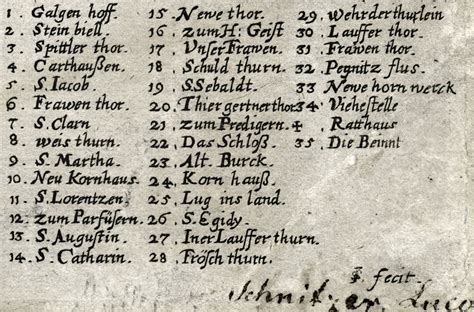 1. Galgen hoff.
2. Stein biell.
3. Spittler thor.
4. Carthaußen.
5. S. Iacob.
6. Frawen thor.
7. S. Clarn
8. weis thurn.
9. S. Martha.
10. Neu Kornhaus.
11. S. Lorentzen
12. zum Parfüsern.
13. S. Augustin.
14. S. Catharin.
15. Newe thor.
16. zum H. Geist
17. Unser Frawen.
18. Schuld thurn.
19. S. Sebaldt.
20. Thiergertnerthor.
21. zum Predigern.
22. Das Schloß.
23. Alt. Burck.
24. Korn hauß.
25. Lug ins land.
26. S. Egidy.
27. Iner Lauffer thurn.
28. Frösch thurn.
29. Wehrderthurlein
30. Lauffer thor.
31. Frawen thor.
32. Pegnitz flus.
33. Newe horn werck
34. Vieheſtelle
+. Ratthaus
35. Die Beinnt
fecit.
Schnitzer